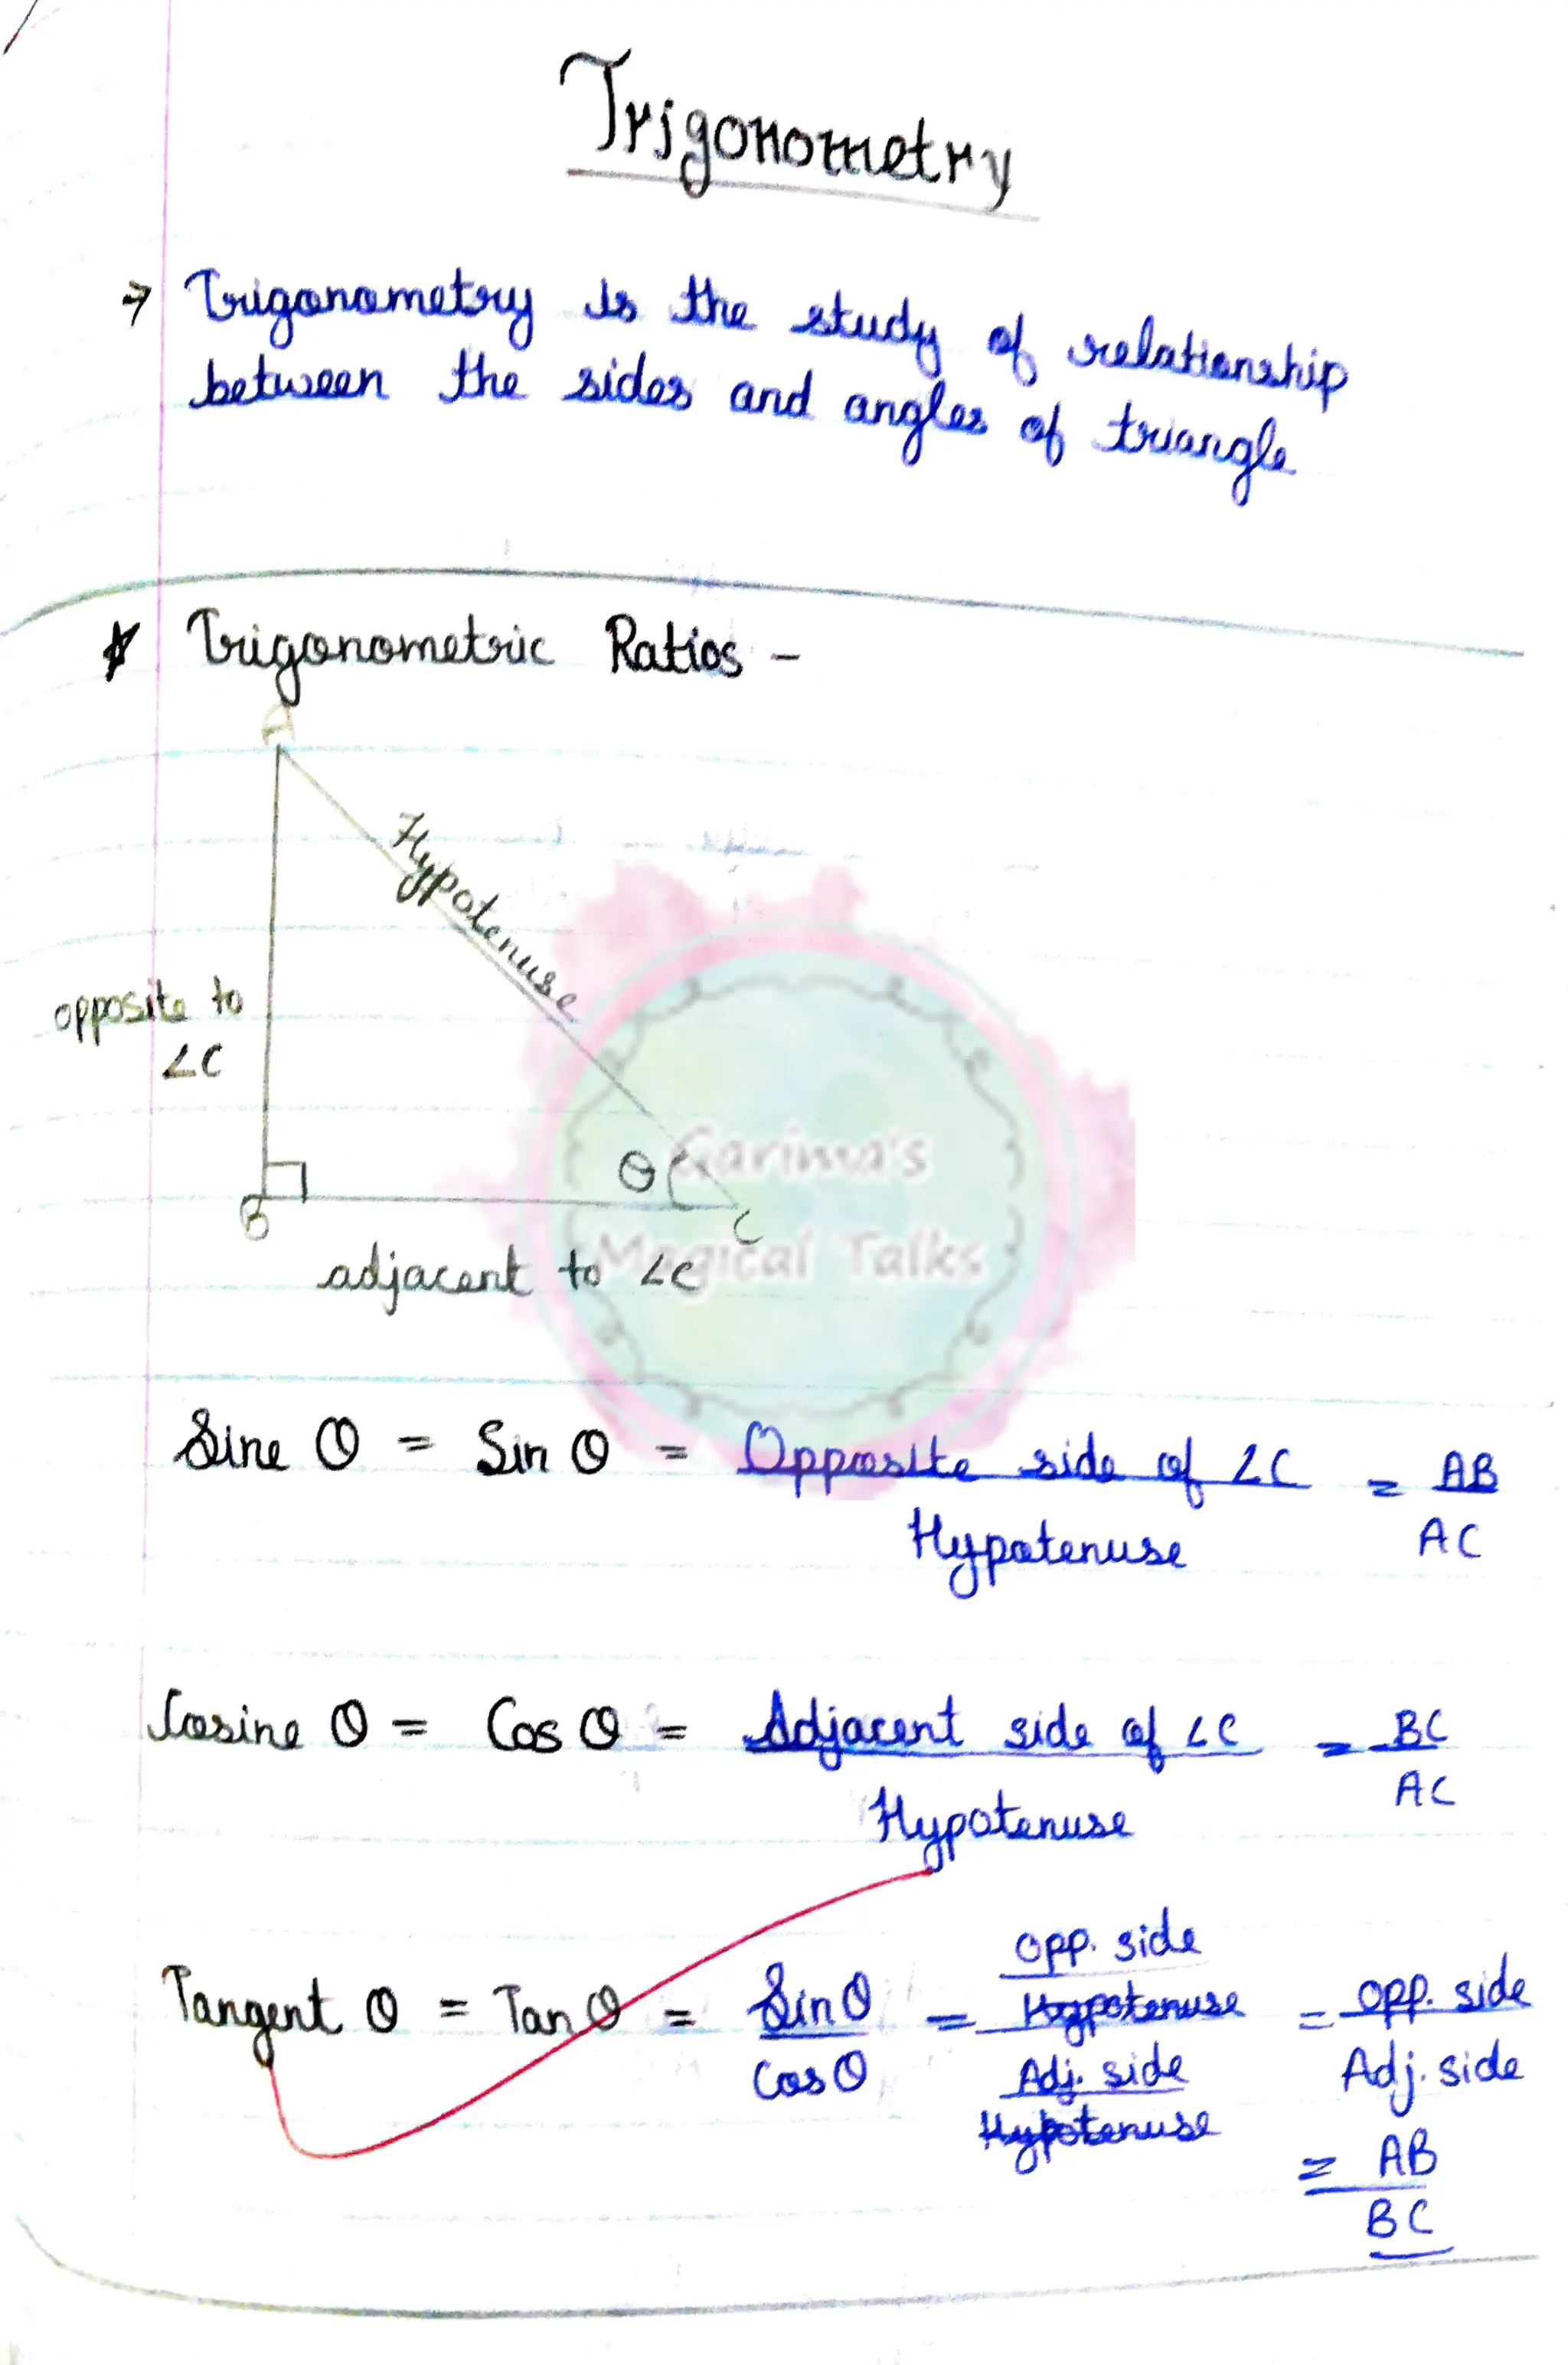 Trigonometry
→ Trigonometry is the study of relationship
between the sides and angles of triangle
* Trigonometric Ratios -
A
Hypotenuse
opposite to
∠C
θ
B
C
adjacent to ∠C
Garima's
Magical Talks
Sine θ = Sin θ = Opposite side of ∠C = AB
Hypotenuse AC
Cosine θ = Cos θ = Adjacent side of ∠C = BC
Hypotenuse AC
Opp. side
Tangent θ = Tan θ = Sin θ = Hypotenuse = Opp. side
Cos θ Adj. side Adj. side
Hypotenuse
= AB
BC